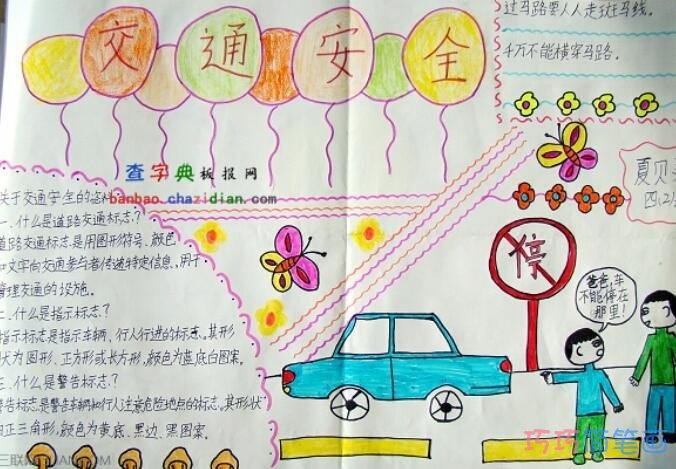 交通安全
过马路要人人走斑马线。
千万不能横穿马路。
查字典板报网
banbao.chazidian.com
夏贝
四(2)
关于交通安全的资料
一、什么是道路交通标志?
道路交通标志是用图形符号、颜色
和文字向交通参与者传递特定信息、用于
管理交通的设施。
二、什么是指示标志?
指示标志是指示车辆、行人行进的标志。其形
状为圆形、正方形或长方形,颜色为蓝底白图案。
三、什么是警告标志?
警告标志是警告车辆和行人注意危险地点的标志。其形状
为正三角形,颜色为黄底、黑边、黑图案。
停
爸爸,车
不能停在
那里!
巧巧简笔画